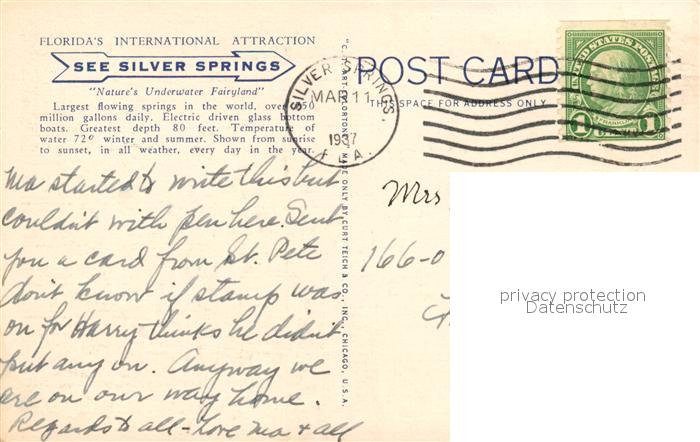 FLORIDA'S INTERNATIONAL ATTRACTION
SEE SILVER SPRINGS
"Nature's Underwater Fairyland"
Largest flowing springs in the world, over 650
million gallons daily. Electric driven glass bottom
boats. Greatest depth 80 feet. Temperature of
water 72° winter and summer. Shown from sunrise
to sunset, in all weather, every day in the year.
Ma started to write this but
couldn't with pen here. Sent
you a card from St. Pete
don't know if stamp was
on for Harry thinks he didn't
put any on. Anyway we
are on our way home.
Regards to all - Love Ma & all
MADE ONLY BY CURT TEICH & CO., INC., CHICAGO, U.S.A.
POST CARD
THIS SPACE FOR ADDRESS ONLY
SILVER SPRINGS,
MAR 11
1937
FLA.
UNITED STATES POSTAGE
FRANKLIN
1 1
Mrs
166-0
privacy protection
Datenschutz